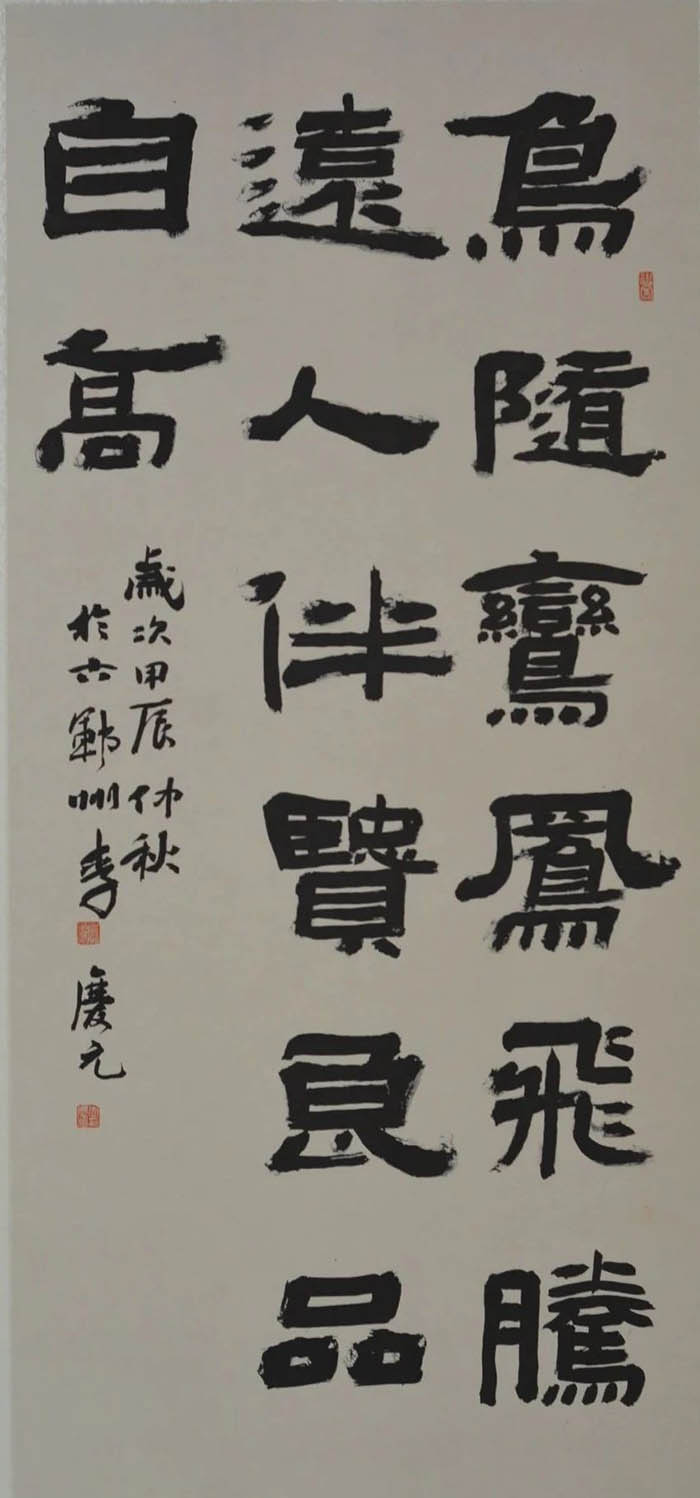 鳥隨鸞鳳飛騰
遠人伴賢良品
自高
歲次甲辰仲秋
於古鄞州李慶元